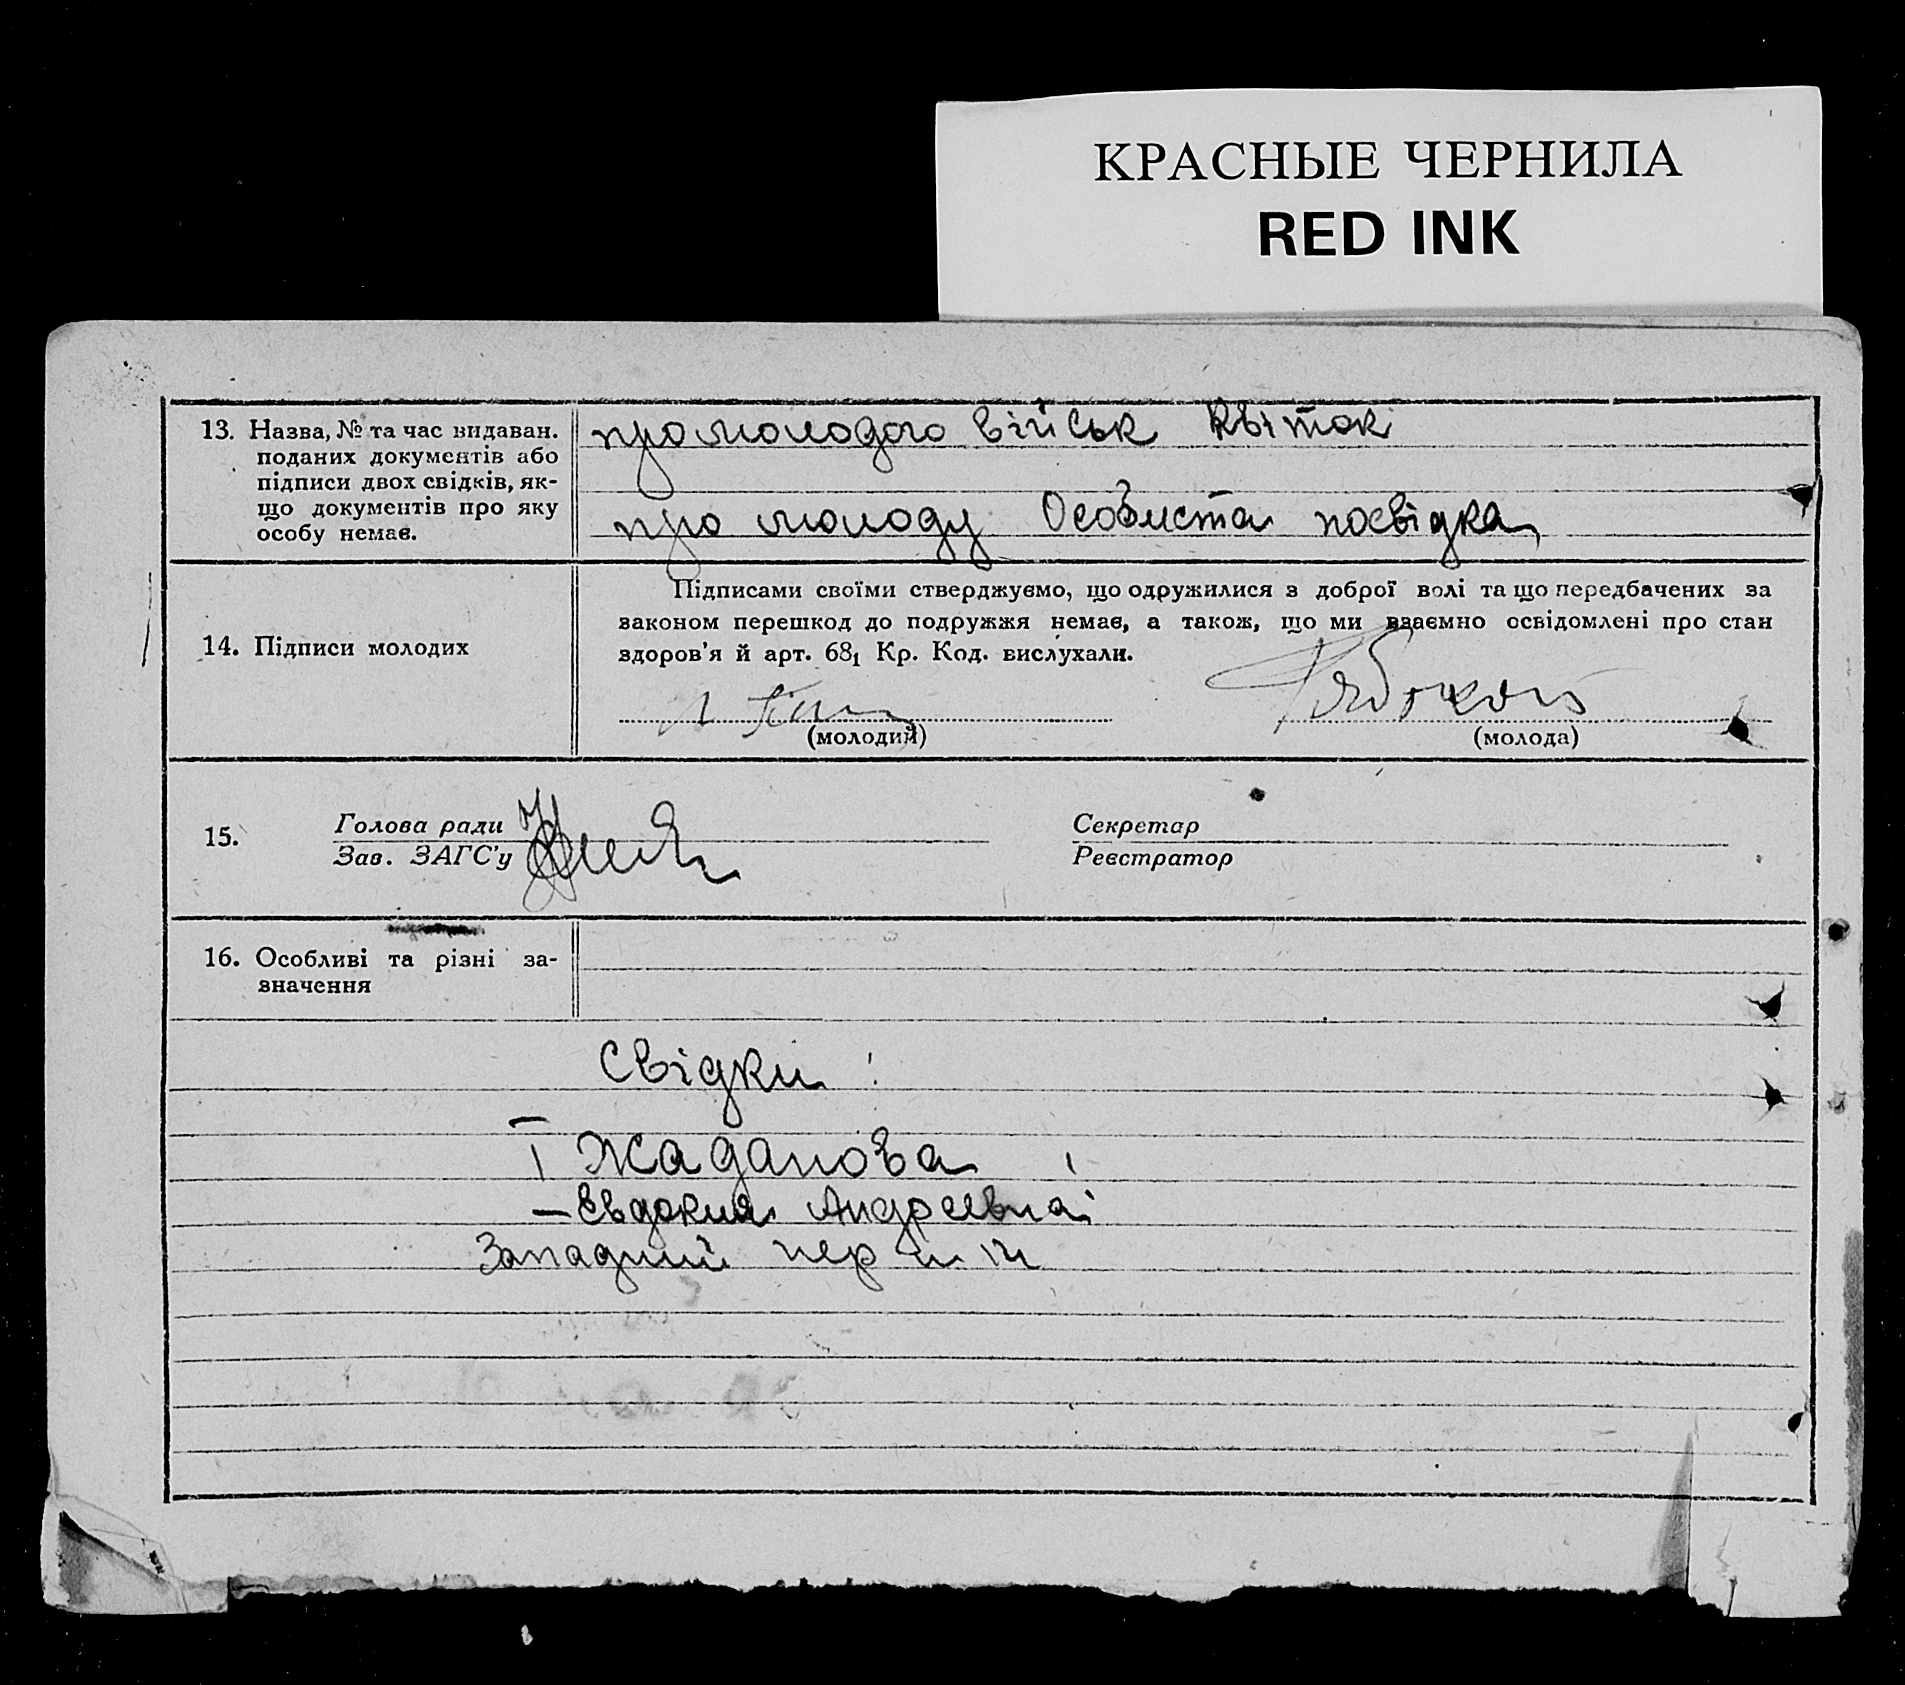 КРАСНЫЕ ЧЕРНИЛА
RED INK
13. Назва, № та час видаван.
поданих документів або
підписи двох свідків, як-
що документів про яку
особу немає.
про молодого військ квіток
про молоду Особиста посвідка
14. Підписи молодих
Підписами своїми стверджуємо, що одружилися з доброї волі та що передбачених за
законом перешкод до подружжя немає, а також, що ми взаємно освідомлені про стан
здоров'я й арт. 68₁ Кр. Код. вислухали.
(молодий)
(молода)
15.
Голова ради
Зав. ЗАГС'у
Секретар
Реєстратор
16. Особливі та різні за-
значення
Свідки :
I Жаданова
— Евдокия Андреевна
Западний пер